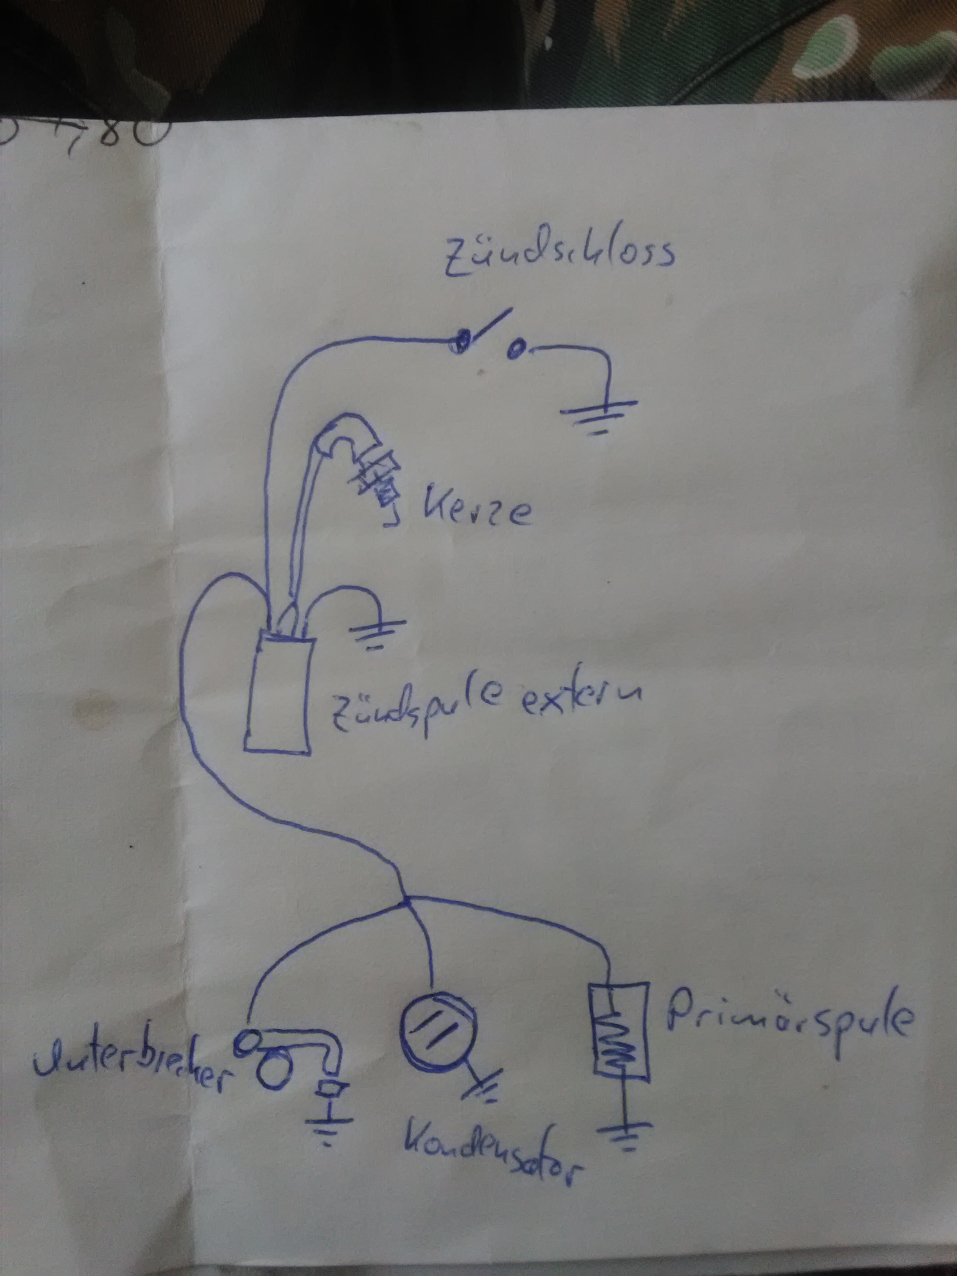 780
Zündschloss
Kerze
Zündspule extern
Primärspule
Unterbrecher
Kondensator